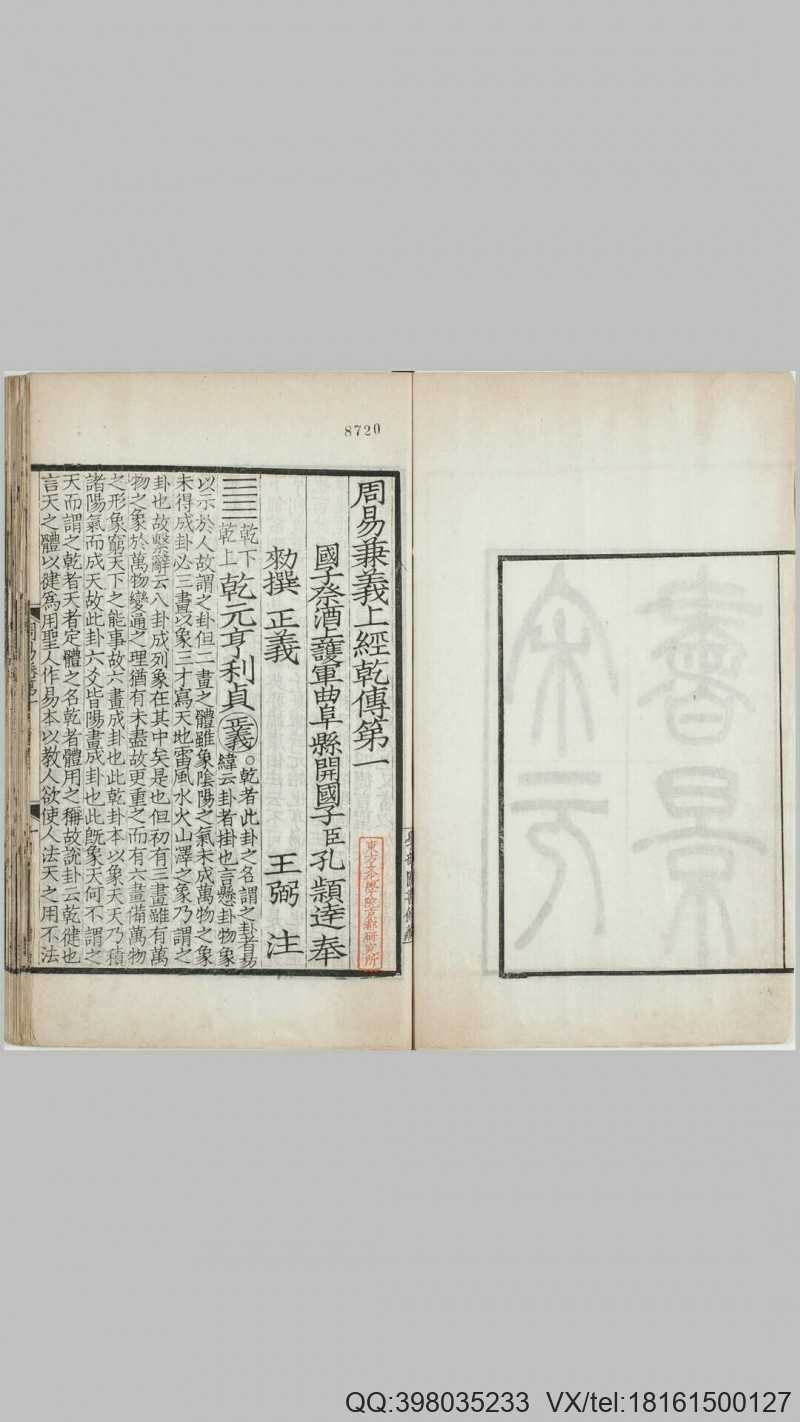 8720
周易兼義上經乾傳第一
國子祭酒上護軍曲阜縣開國子臣孔穎達奉
勑撰 正義 王弼 注
乾下
乾上
乾元亨利貞
正義
○乾者此卦之名謂之卦者易
緯云卦者掛也言懸卦物象
以示於人故謂之卦但二畫之體雖象陰陽之氣未成萬物之象
未得成卦必三畫以象三才寫天地雷風水火山澤之象乃謂之
卦也故繫辭云八卦成列象在其中矣是也但初有三畫雖有萬
物之象於萬物變通之理猶有未盡故更重之而有六畫備萬物
之形象窮天下之能事故六畫成卦也此乾卦本以象天天乃積
諸陽氣而成天故此卦六爻皆陽畫成卦也此旣象天何不謂之
天而謂之乾者天者定體之名乾者體用之稱故說卦云乾健也
言天之體以健爲用聖人作易本以教人欲使人法天之用不法
東方文化學院京都研究所
QQ:398035233 VX/tel:18161500127